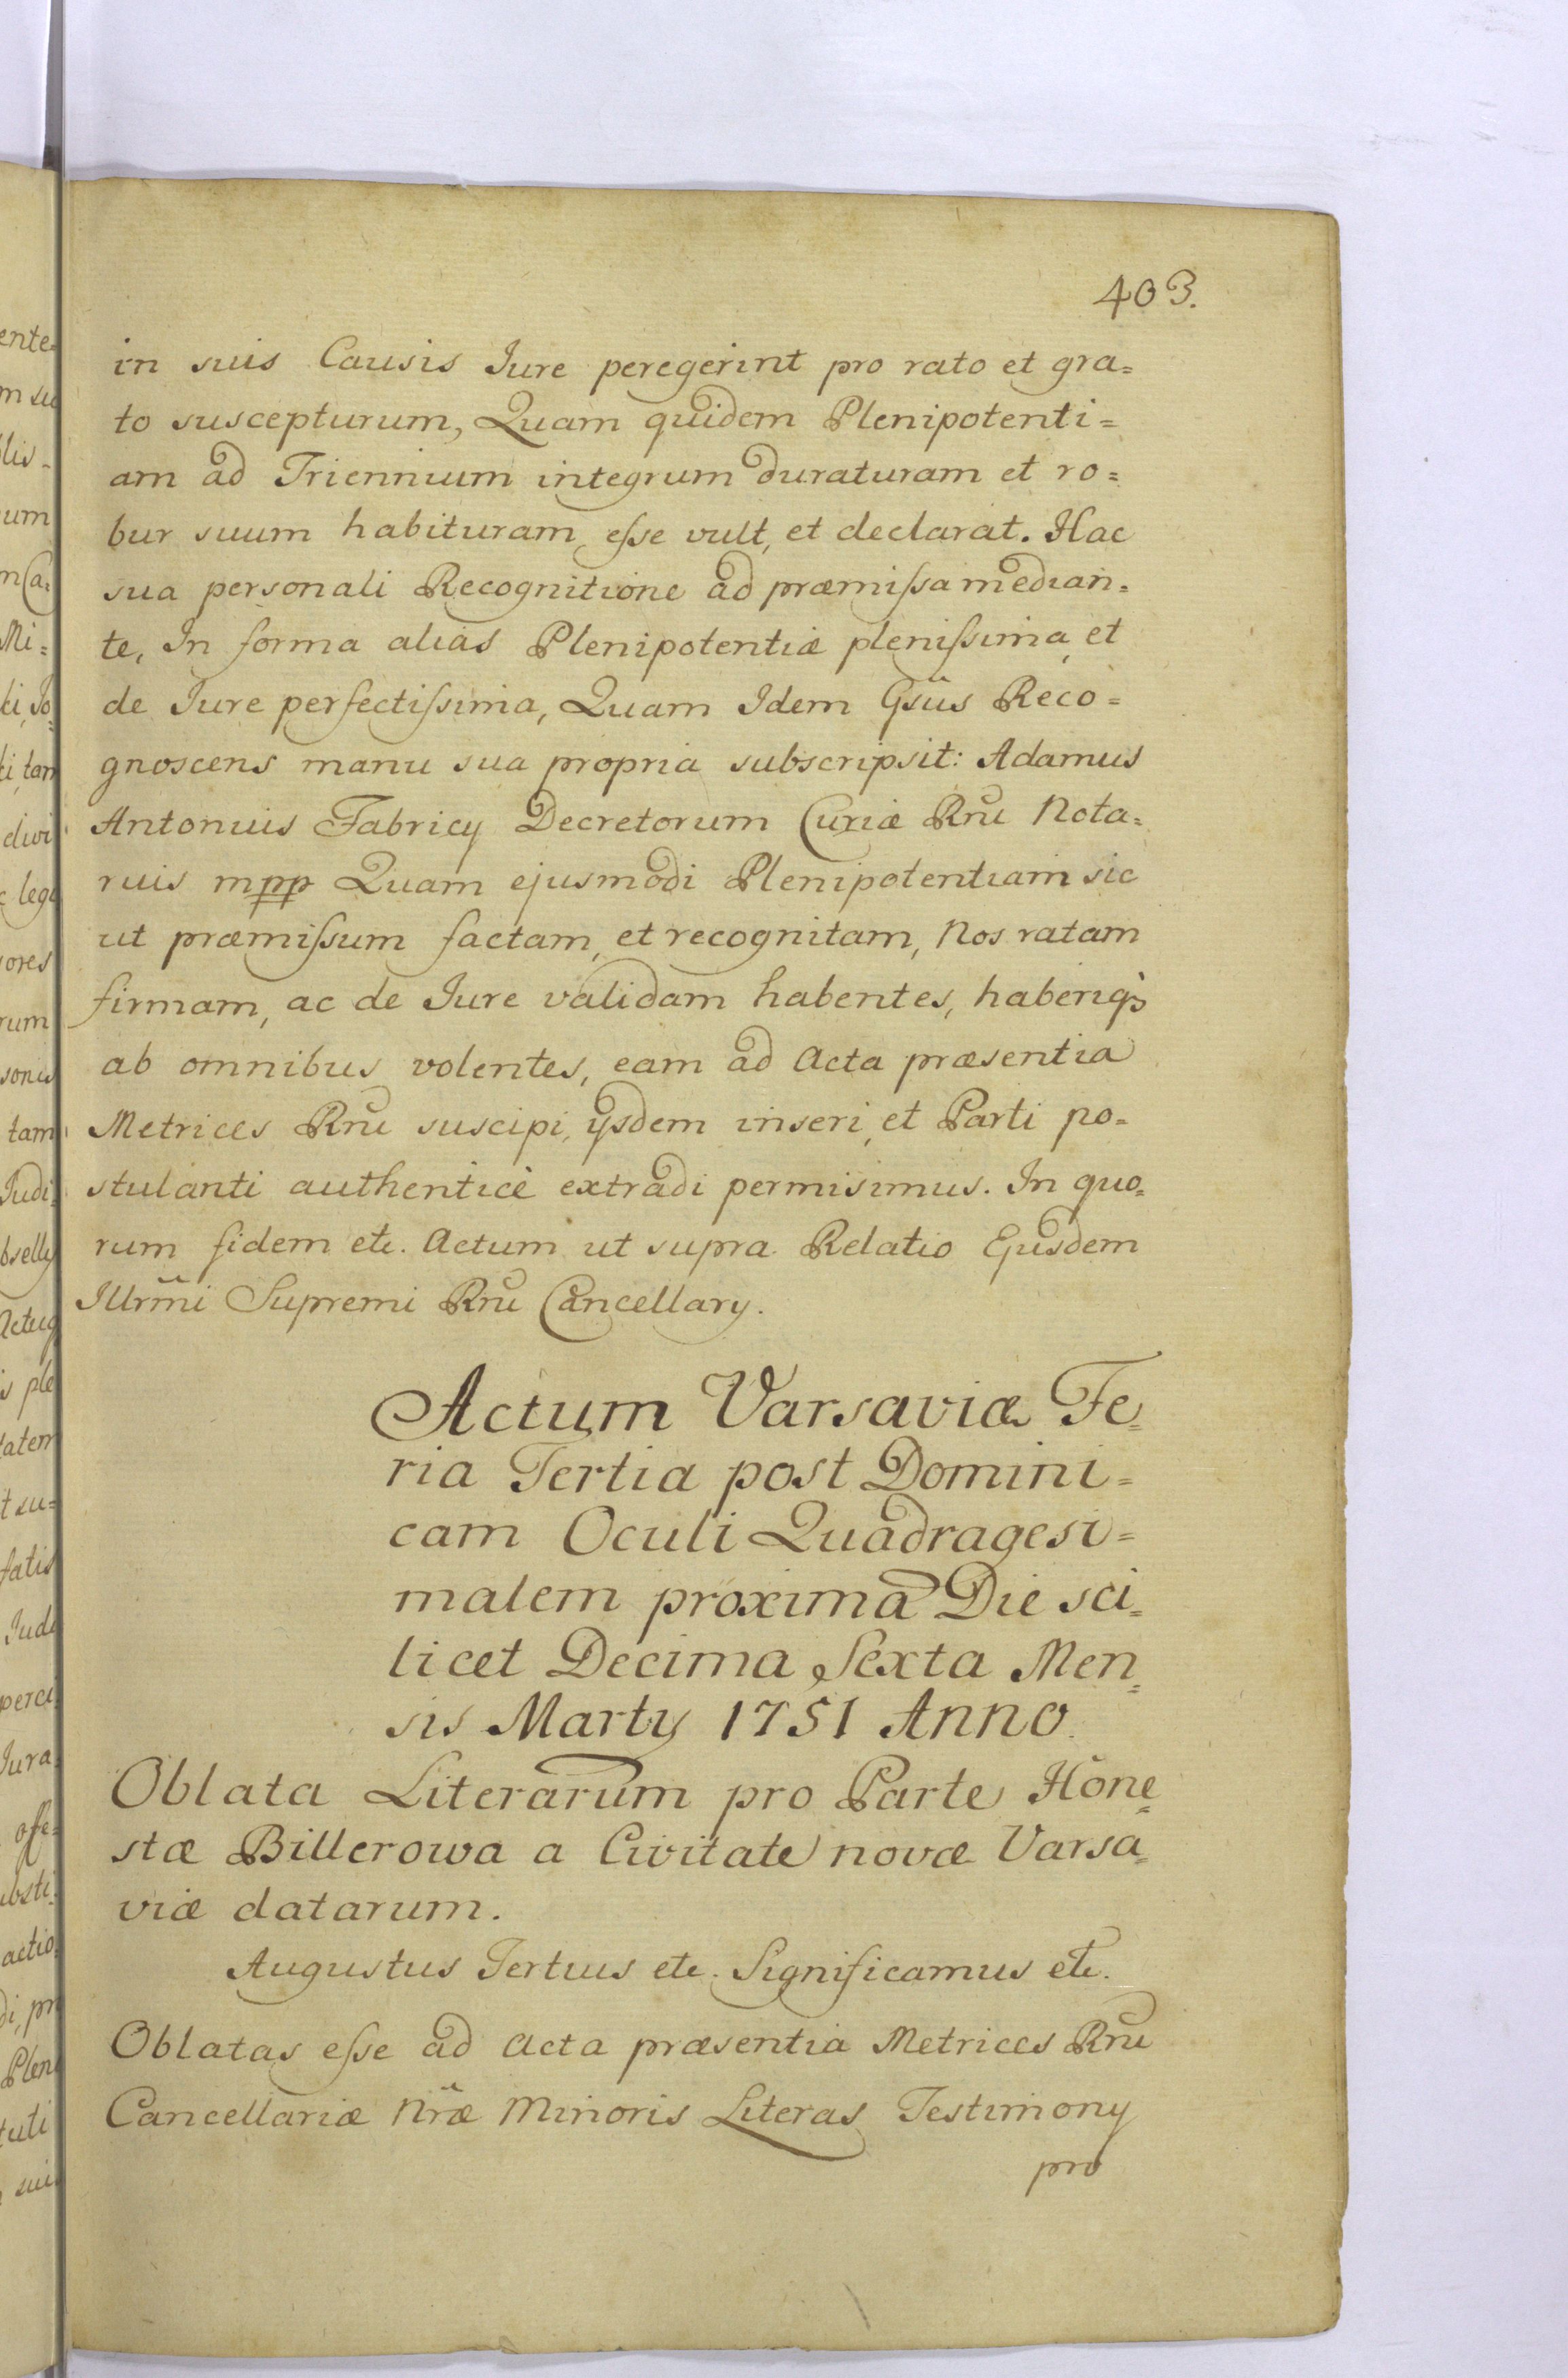 403.
in suis Causis Jure peregerint pro rato et gra=
to suscepturum, Quam quidem Plenipotenti=
am ad Triennium integrum duraturam et ro=
bur suum habituram, esse vult, et declarat. Hac
sua personali Recognitione ad præmissa median=
te, In forma alias Plenipotentiæ plenissima, et
de Jure perfectissima, Quam Idem Gsũs Reco=
gnoscens manu sua propria subscripsit: Adamus
Antonius Fabricy Decretorum Curiæ Rnũ Nota=
rius mpp Quam ejusmodi Plenipotentiam sic
ut præmissum factam, et recognitam, Nos ratam
firmam, ac de Jure validam habentes, haberiq́3
ab omnibus volentes, eam ad Acta præsentia
Metrices Rnũ suscipi, ijsdem inseri, et Parti po=
stulanti authenticè extradi permisimus. In quo=
rum fidem etc. Actum ut supra. Relatio Ejusdem
Illrm̃i Supremi Rnũ Cancellary.
Actum Varsaviæ Fe=
ria Tertia post Domini=
cam Oculi Quadragesi=
malem proxima Die sci=
licet Decima Sexta Men=
sis Marty 1751 Anno.
Oblata Literarum pro Parte Hone=
stæ Billerowa a Civitate novæ Varsa=
viæ datarum.
Augustus Tertius etc. Significamus etc.
Oblatas esse ad Acta præsentia Metrices Rnũ
Cancellariæ Nr̃æ Minoris Literas Testimony
pro
ente=
m su
lis=
um
m Ca=
Mi=
ti, Jo=
ti, tam
divi
c lega
ores
rum
sonis
tam
Judi=
bselly
Actug
s ple
tatem
t su=
fatis
Judi
perci
Jura
offe=
ubsti=
actio=
di, pr
Plen
tuti
sui